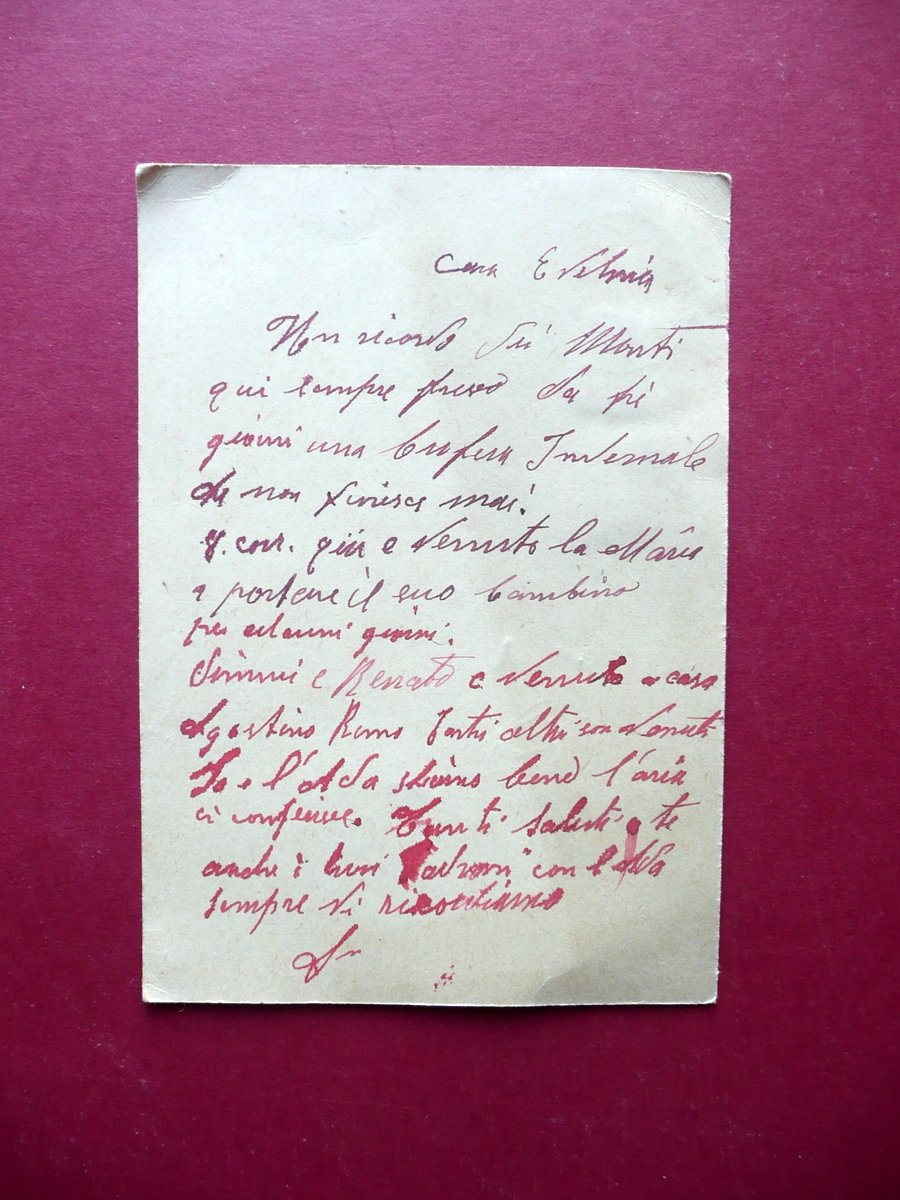 Cara Edelmia
Un ricordo dei Monti
qui sempre freddo da più
giorni una bufera Invernale
che non finisce mai!
qui è venuto la Maria
a portare il suo bambino
per alcuni giorni.
e Renato è venuto a casa
Agostino Remo Tanti altri son venuti
Io e l'Ada stiamo bene l'aria
ci conferisce. Tanti saluti a te
anche i tuoi Padroni con l'Ada
sempre vi ricordiamo